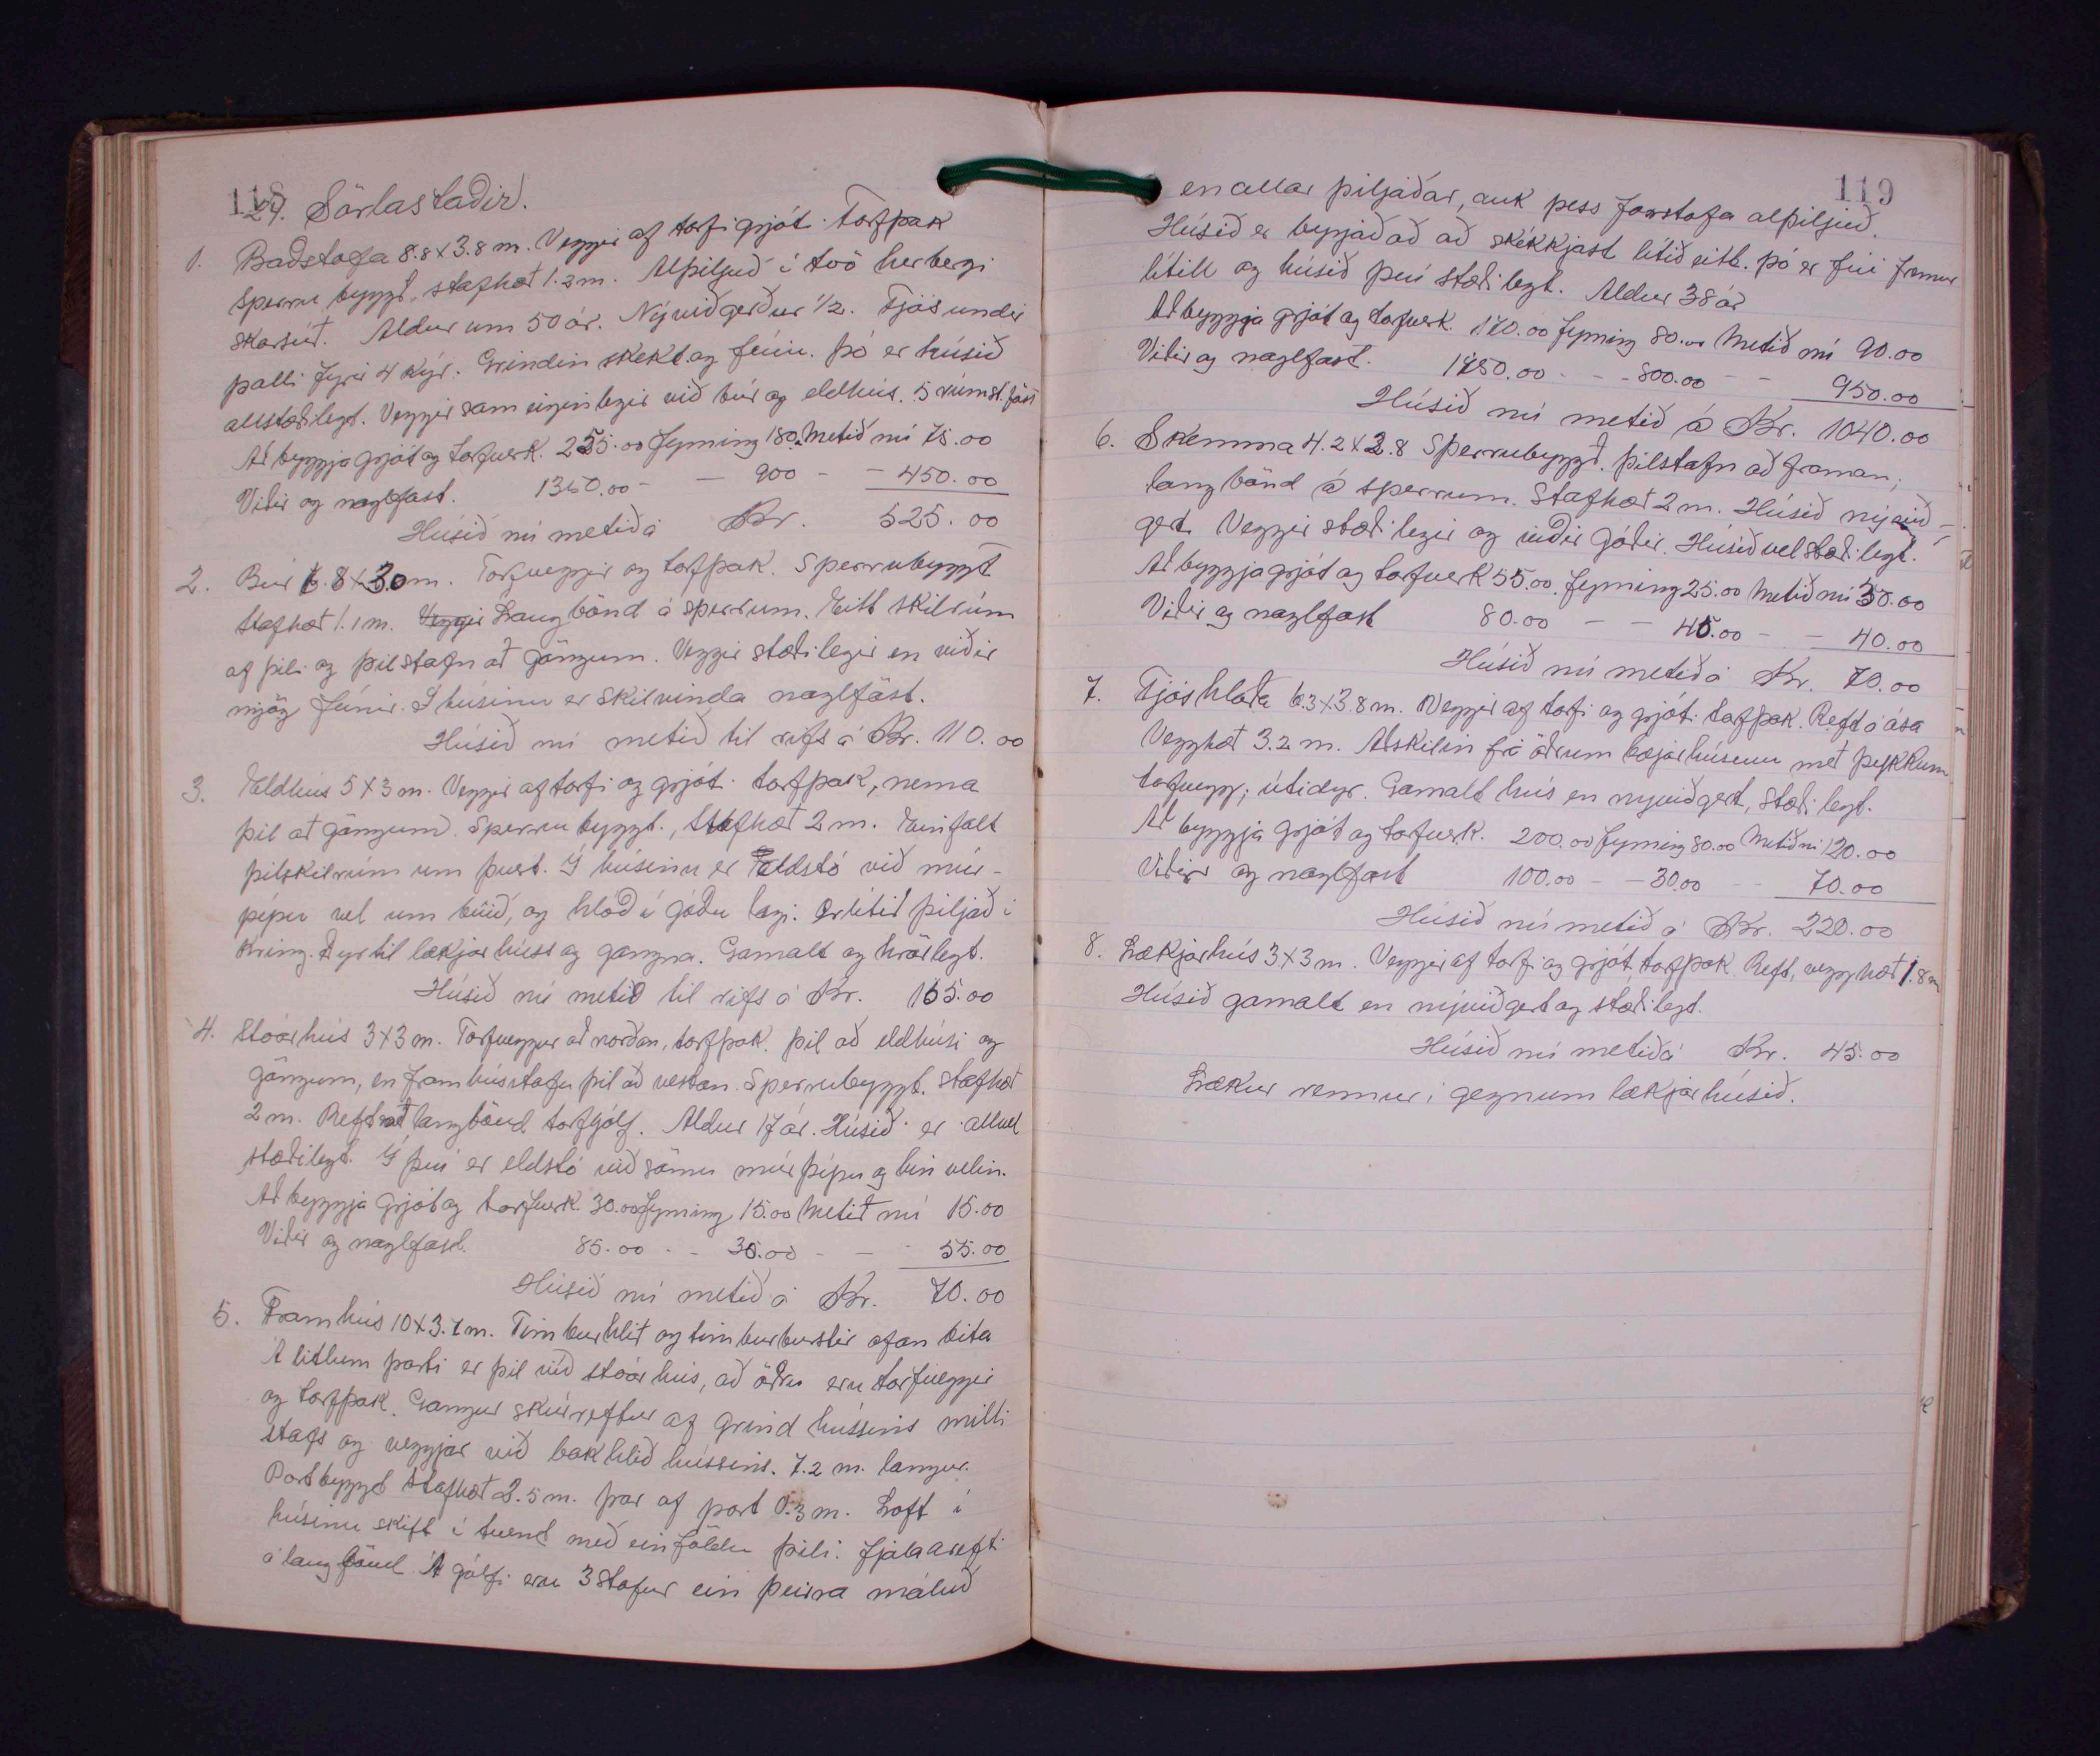 118
29. Sörlastaðir.
1. Baðstofa 8.8x3.8 m. Veggir af torfi grjóti. Torfþak
Sperru byggð, stafhæt 1.2 m. Alþiljuð í tvö herbergi
skarsúð. Aldur um 50 ár. Nývið gerður 1/2. Fjós undir
palli fyrir 4 kýr. Grindin skekt og fúin. Þó er húsið
allstæðilegt. Veggir sameiginlegir við búr og eldhús. 5 rúmst. föst
Að byggja grjót og torfverk. 255.00 fyrning 180. Metið nú 75.00
Viðir og naglfast. 1350.00 - - 900 - - 450.00
Húsið nú metið á Kr. 525.00
2. Búr 6.8x3.0 m. Torfveggir og torfþak. Sperrubyggt
stafhæt 1.1 m. Langbönd á sperrum. Eitt skilrúm
af þili og þilstafn að göngum. Veggir stæðilegir en viðir
mjög fúnir. Í húsinu er skilvinda naglföst.
Húsið nú metið til rifs á Kr. 110.00
3. Eldhús 5x3 m. Veggir af torfi og grjóti torfþak, nema
þil að göngum. Sperru byggt., stafhæt 2 m. Einfalt
þilskilrúm um þvert. Í húsinu er eldstó við múr-
pípu vel um búið, og hlóð í góðu lagi. Örlítið þiljað í
kring. Dyr til lækjarhúss og gangna. Gamalt og hrörlegt.
Húsið nú metið til rifs á Kr. 165.00
4. Stóarhús 3x3 m. Torfveggur að norðan, torfþak. Þil að eldhúsi og
göngum, en framhússtafn þil að vestan. Sperrubyggt. Stafhæt
2 m. Reft langbönd torfgólf. Aldur 17 ár. Húsið er allvel
stæðilegt. Í því er eldstó við sömu múrpípu og hin vélin.
Að byggja grjót og torfverk. 30.00 fyrning 15.00 Metið nú 15.00
Viðir og naglfast. 85.00 - - 30.00 - - 55.00
Húsið nú metið á Kr. 70.00
5. Framhús 10x3.7 m. Timburhlið og timburburstir ofan bita
Á litlum parti er þil við stóarhús, að öðru eru torfveggir
og torfþak. Gangur skúrreftur af grind hússins milli
stafs og veggjar við bakhlið hússins. 7.2 m. langur.
Portbyggt stafhæt 2.5 m. þar af port 0.3 m. Loft í
húsinu skift í tvent með einföldu þili. Fjalaareft
á langbönd. Á gólfi eru 3 stofur ein þeirra máluð
119
en allar þiljaðar, auk þess forstofa alþiljuð.
Húsið er byrjað að að skekkjast lítið eitt. Þó er fúi fremur
lítill og húsið því stæðilegt. Aldur 38 ár
Að byggja grjót og torfverk. 170.00 fyrning 80.00 Metið nú 90.00
Viðir og naglfast. 1750.00 - - - 800.00 - - 950.00
Húsið nú metið á Kr. 1040.00
6. Skemma 4.2x2.8 Sperrubyggð. Þilstafn að framan;
langbönd á sperrum. Stafhæt 2 m. Húsið nývið-
gert. Veggir stæðilegir og viðir góðir. Húsið vel stæðilegt.
Að byggja grjót og torfverk 55.00. fyrning 25.00 Metið nú 30.00
Viðir og naglfast 80.00 - - 40.00 - - 40.00
Húsið nú metið á Kr. 70.00
7. Fjóshlaða 6.3x3.8 m. Veggir af torfi og grjóti torfþak. Reft á ása
Vegghæt 3.2 m. Aðskilin frá öðrum bæjarhúsum með þykkum
torfvegg; útidyr. Gamalt hús en nýviðgert, stæðilegt.
Að byggja grjót og torfverk. 200.00 fyrning 80.00 Metið nú 120.00
Viðir og naglfast 100.00 - - 30.00 - - 70.00
Húsið nú metið á Kr. 220.00
8. Lækjarhús 3x3 m. Veggir af torfi og grjót, torfþak. Reft, vegghæt 1.8 m
Húsið gamalt en nýviðgert og stæðilegt.
Húsið nú metið á Kr. 45.00
Lækur rennur í gegnum lækjarhúsið.